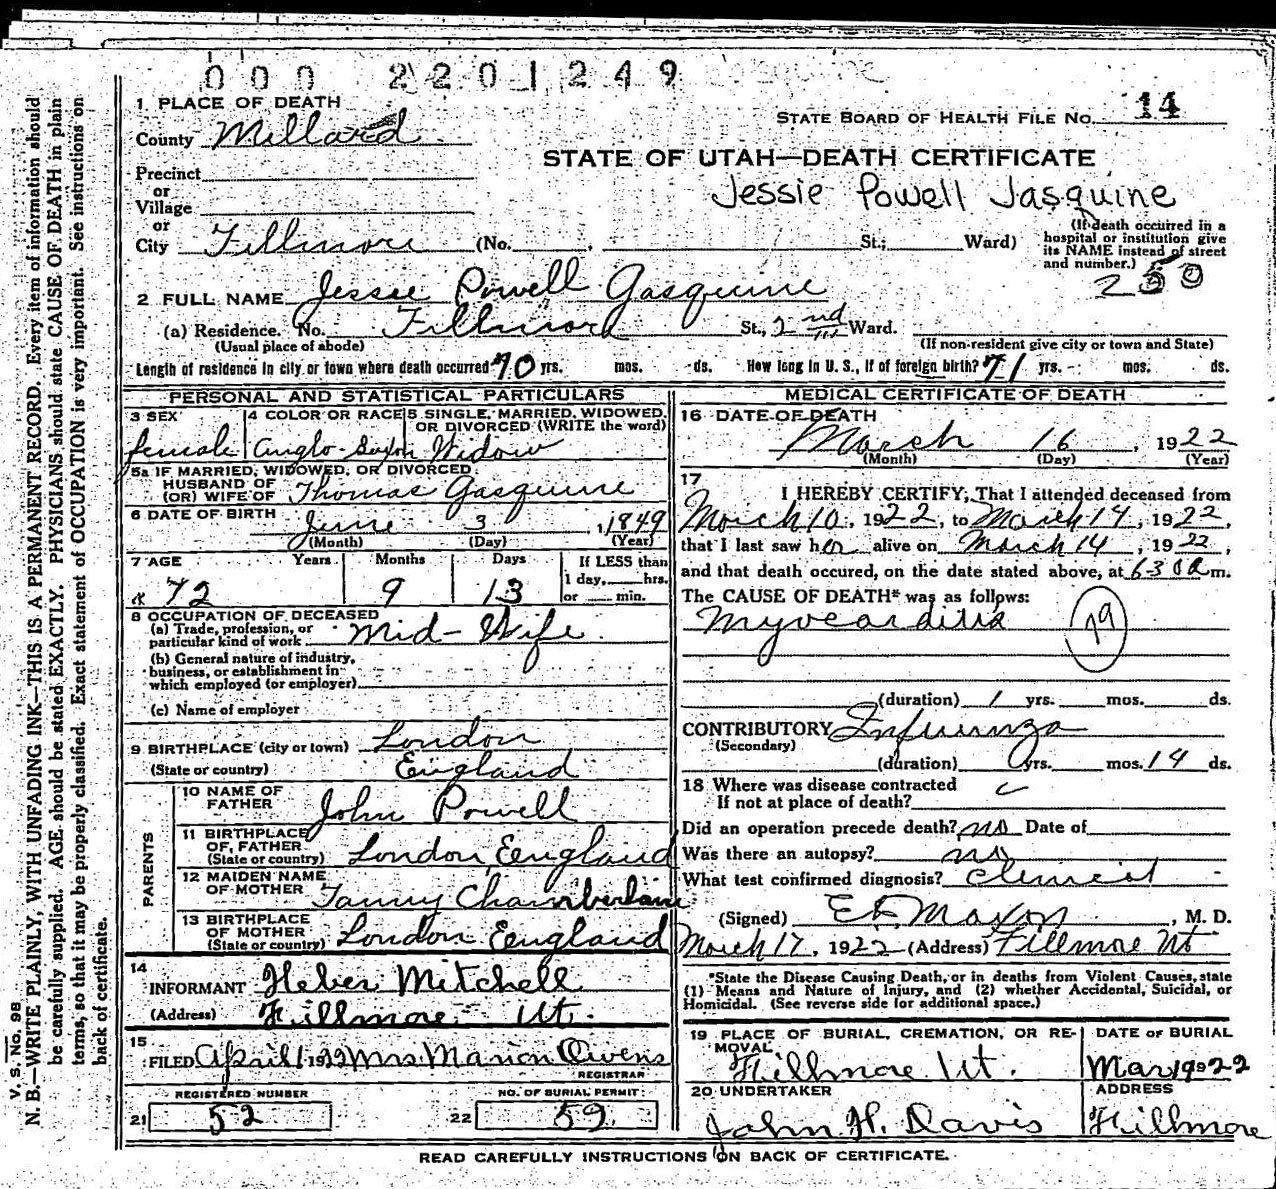 000 2201249
1 PLACE OF DEATH
County Millard
STATE BOARD OF HEALTH FILE No. 14
STATE OF UTAH—DEATH CERTIFICATE
Precinct
or
Village
or
City Fillmore (No. , St.; Ward)
Jessie Powell Jasquine
(If death occurred in a
hospital or institution give
its NAME instead of street
and number.)
250
2 FULL NAME Jessie Powell Gasquine
(a) Residence. No. Fillmore St., 2nd Ward.
(Usual place of abode)
(If non-resident give city or town and State)
Length of residence in city or town where death occurred 70 yrs. mos. ds. How long in U. S., if of foreign birth? 71 yrs. mos. ds.
PERSONAL AND STATISTICAL PARTICULARS
3 SEX
female
4 COLOR OR RACE
Anglo-Saxon
5 SINGLE, MARRIED, WIDOWED,
OR DIVORCED (WRITE the word)
Widow
5a IF MARRIED, WIDOWED, OR DIVORCED
HUSBAND OF
(OR) WIFE OF Thomas Gasquine
6 DATE OF BIRTH
June 3, 1849
(Month) (Day) (Year)
7 AGE Years Months Days
72 9 13
If LESS than
1 day, hrs.
or min.
8 OCCUPATION OF DECEASED
(a) Trade, profession, or
particular kind of work Mid-Wife
(b) General nature of industry,
business, or establishment in
which employed (or employer)
(c) Name of employer
9 BIRTHPLACE (city or town) London
(State or country) England
PARENTS
10 NAME OF
FATHER John Powell
11 BIRTHPLACE
OF FATHER
(State or country) London, Eengland
12 MAIDEN NAME
OF MOTHER Fanny Chamberlain
13 BIRTHPLACE
OF MOTHER
(State or country) London Eengland
14
INFORMANT Heber Mitchell
(Address) Fillmore Ut.
15
FILED April 1 1922 Mrs Marion Owens
REGISTRAR
REGISTERED NUMBER
21 52
NO. OF BURIAL PERMIT
22 59
MEDICAL CERTIFICATE OF DEATH
16 DATE OF DEATH
March 16, 1922
(Month) (Day) (Year)
17
I HEREBY CERTIFY, That I attended deceased from
March 10, 1922, to March 14, 1922,
that I last saw her alive on March 14, 1922,
and that death occured, on the date stated above, at 6-30 a m.
The CAUSE OF DEATH* was as follows:
Myocarditis
79
(duration) 1 yrs. mos. ds.
CONTRIBUTORY Influenza
(Secondary)
(duration) yrs. mos. 14 ds.
18 Where was disease contracted
If not at place of death?
Did an operation precede death? no Date of
Was there an autopsy? no
What test confirmed diagnosis?
(Signed) Maxon, M. D.
March 17, 1922 (Address) Fillmore Ut
*State the Disease Causing Death, or in deaths from Violent Causes, state
(1) Means and Nature of Injury, and (2) whether Accidental, Suicidal, or
Homicidal. (See reverse side for additional space.)
19 PLACE OF BURIAL, CREMATION, OR RE-
MOVAL
Fillmore Ut.
DATE OF BURIAL
Mar 1922
20 UNDERTAKER
John H. Davis
ADDRESS
Fillmore
READ CAREFULLY INSTRUCTIONS ON BACK OF CERTIFICATE.
V. S. No. 98
N. B.—WRITE PLAINLY, WITH UNFADING INK—THIS IS A PERMANENT RECORD. Every item of information should
be carefully supplied. AGE should be stated EXACTLY. PHYSICIANS should state CAUSE OF DEATH in plain
terms, so that it may be properly classified. Exact statement of OCCUPATION is very important. See instructions on
back of certificate.